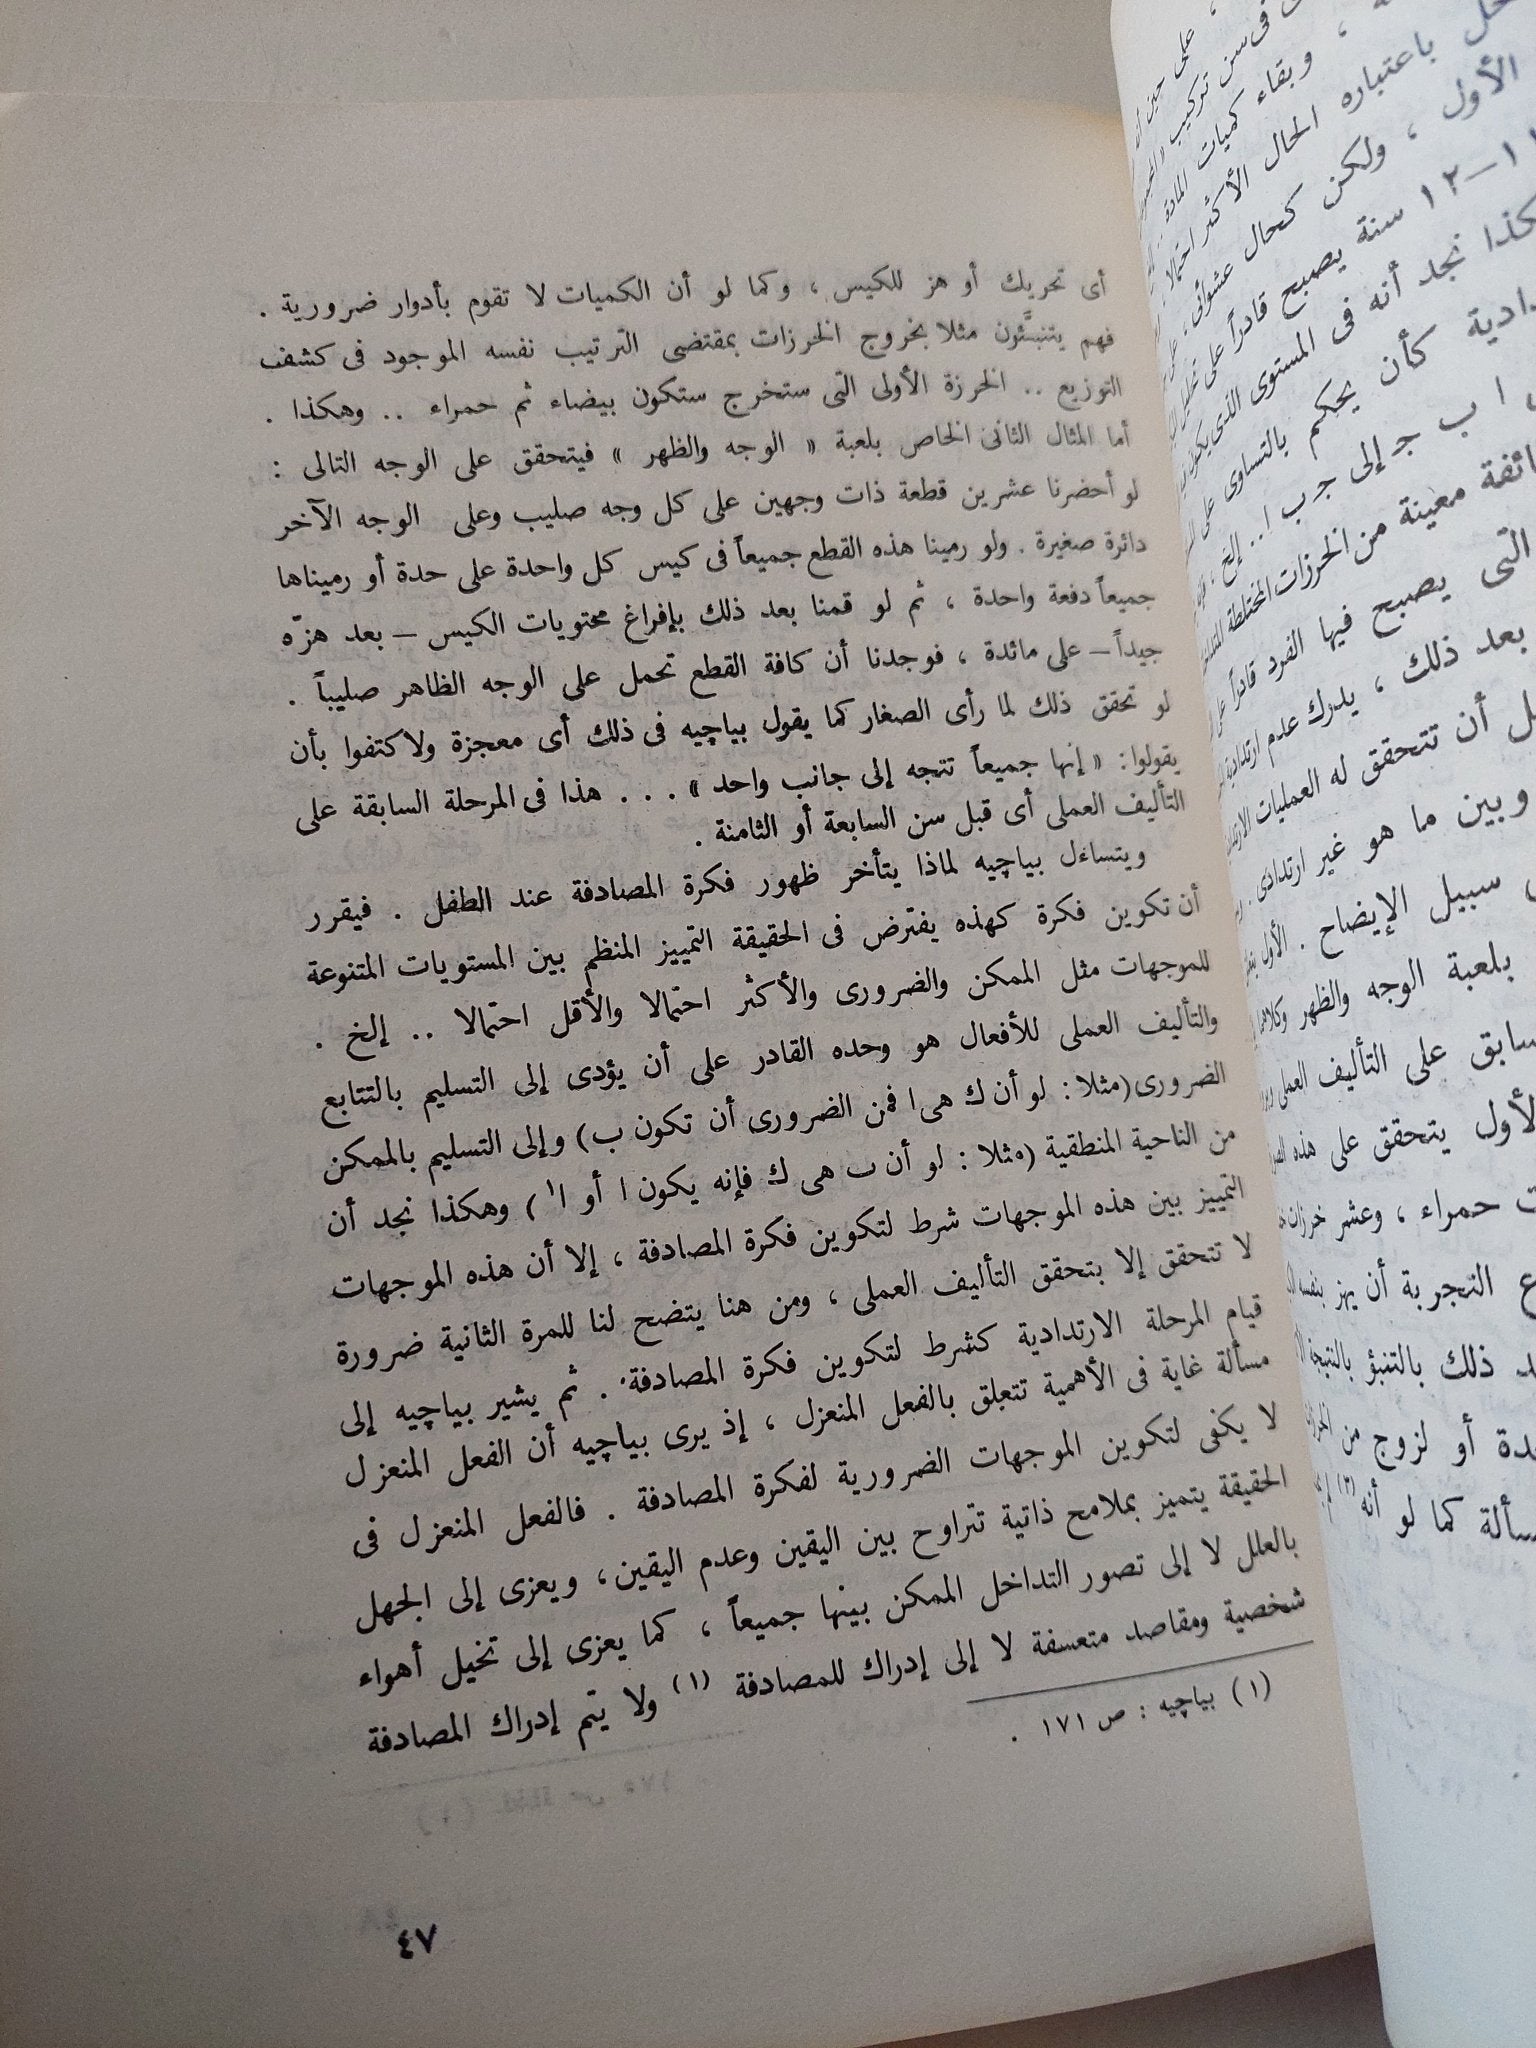 أى تحريك أو هز للكيس ، وكما لو أن الكميات لا تقوم بأدوار ضرورية .
فهم يتنبَّئون مثلا بخروج الخرزات بمقتضى الترتيب نفسه الموجود فى كشف
التوزيع .. الخرزة الأولى التى ستخرج ستكون بيضاء ثم حمراء .. وهكذا .
أما المثال الثانى الخاص بلعبة « الوجه والظهر » فيتحقق على الوجه التالى :
لو أحضرنا عشرين قطعة ذات وجهين على كل وجه صليب وعلى الوجه الآخر
دائرة صغيرة . ولو رمينا هذه القطع جميعاً فى كيس كل واحدة على حدة أو رميناها
جميعاً دفعة واحدة ، ثم لو قمنا بعد ذلك بإفراغ محتويات الكيس – بعد هزّه
جيداً – على مائدة ، فوجدنا أن كافة القطع تحمل على الوجه الظاهر صليباً .
لو تحقق ذلك لما رأى الصغار كما يقول بياچيه فى ذلك أى معجزة ولاكتفوا بأن
يقولوا : « إنها جميعاً تتجه إلى جانب واحد » . . . هذا فى المرحلة السابقة على
التأليف العملى أى قبل سن السابعة أو الثامنة .
ويتساءل بياچيه لماذا يتأخر ظهور فكرة المصادفة عند الطفل . فيقرر
أن تكوين فكرة كهذه يفترض فى الحقيقة التمييز المنظم بين المستويات المتنوعة
للموجهات مثل الممكن والضرورى والأكثر احتمالا والأقل احتمالا .. إلخ .
والتأليف العملى للأفعال هو وحده القادر على أن يؤدى إلى التسليم بالتتابع
الضرورى (مثلا : لو أن ك هى ا فمن الضرورى أن تكون ب) وإلى التسليم بالممكن
من الناحية المنطقية (مثلا : لو أن ب هى ك فإنه يكون ا أو ا١) وهكذا نجد أن
التمييز بين هذه الموجهات شرط لتكوين فكرة المصادفة ، إلا أن هذه الموجهات
لا تتحقق إلا بتحقق التأليف العملى ، ومن هنا يتضح لنا للمرة الثانية ضرورة
قيام المرحلة الارتدادية كشرط لتكوين فكرة المصادفة . ثم يشير بياچيه إلى
مسألة غاية فى الأهمية تتعلق بالفعل المنعزل ، إذ يرى بياچيه أن الفعل المنعزل
لا يكفى لتكوين الموجهات الضرورية لفكرة المصادفة . فالفعل المنعزل فى
الحقيقة يتميز بملامح ذاتية تتراوح بين اليقين وعدم اليقين ، ويعزى إلى الجهل
بالعلل لا إلى تصور التداخل الممكن بينها جميعاً ، كما يعزى إلى تخيل أهواء
شخصية ومقاصد متعسفة لا إلى إدراك للمصادفة (١) ولا يتم إدراك المصادفة
(١) بياچيه : ص ١٧١ .
٤٧
على حين أن
فى سن تركيب
، وبقاء كميات المادة ..
باعتباره الحال الأكثر احتمالا
الأول ، ولكن كحال عشوائى ،
١١–١٢ سنة يصبح قادراً على تحليل
كذا نجد أنه فى المستوى الذى يكون
كأن يحكم بالتساوى على
ا ب ج إلى ج ب ا .. إلخ ،
معينة من الخرزات المختلطة
التى يصبح فيها الفرد قادراً على
بعد ذلك ، يدرك عدم ارتدادية
أن تتحقق له العمليات
وبين ما هو غير ارتدادى .
سبيل الإيضاح . الأول
بلعبة الوجه والظهر وكلاهما
على التأليف العملى
الأول يتحقق على هذه
حمراء ، وعشر خرزات
التجربة أن يهز بنفسه
ذلك بالتنبؤ بالنتيجة
أو لزوج من
كما لو أنه (٢)